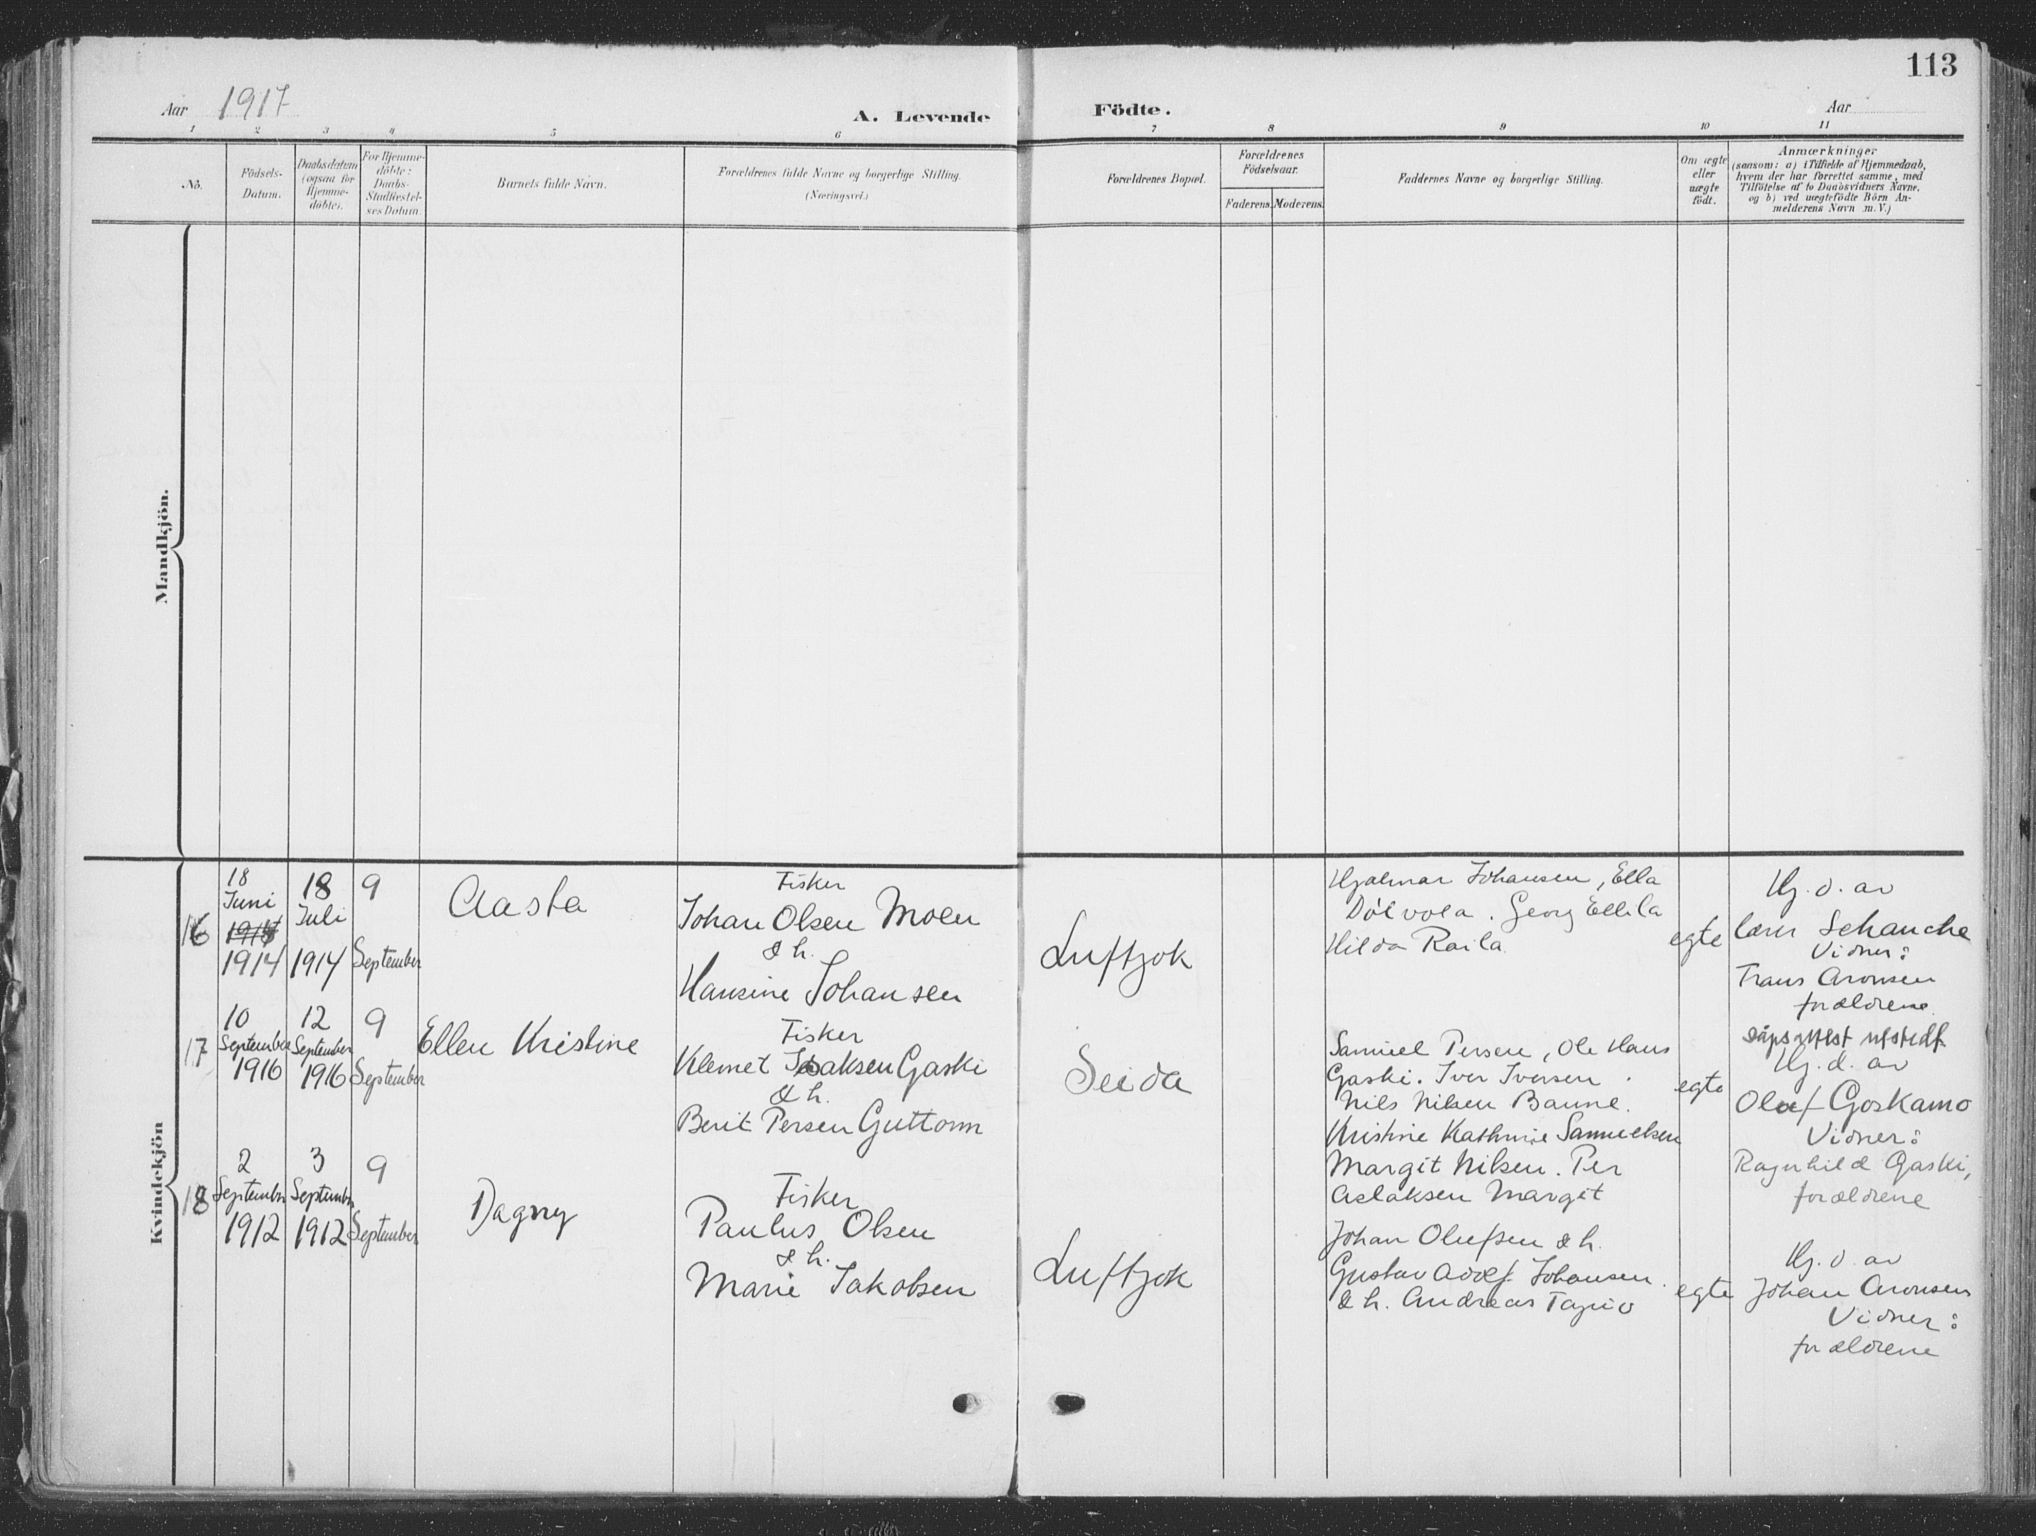 113
Aar 1917
A. Levende Födte.
Aar
1 2 3 4 5 6 7 8 9 10 11
No.
Födsels-
Datum.
Daabsdatum
(ogsaa for
Hjemme-
döbte).
For Hjemme-
döbte:
Daabs-
Stadfæstel-
ses Datum
Barnets fulde Navn.
Forældrenes fulde Navne og borgerlige Stilling.
(Næringsvei.)
Forældrenes Bopæl.
Forældrenes
Födselsaar.
Faderens. Moderens.
Faddernes Navne og borgerlige Stilling.
Om ægte
eller
uægte
födt.
Anmærkninger
(saasom: a) i Tilfælde af Hjemmedaab,
hvem der har forrettet samme, med
Tilföielse af to Daabsvidners Navne,
og b) ved uægtefödte Börn An-
melderens Navn m. V.)
Mandkjön.
Kvindekjön
16
18
Juni
1914
18
Juli
1914
9
September
Aasta
Fisker
Johan Olsen Moen
& h.
Hansine Johansen
Luftjok
Hjalmar Johansen, Ella
Dölvola. Georg Ellila
Hilda Raila
egte
Hj. d. av
lærer Schanche
Vidner:
Frans Aronsen
forældrene
17
10
September
1916
12
September
1916
9
September
Ellen Kristine
Fisker
Klemet Isaksen Gaski
& h.
Berit Persen Guttorm
Seida
Samuel Persen, Ole Hans
Gaski. Iver Iversen.
Nils Nilsen Banne.
Kristine Kathrine Samuelsen
Margit Nilsen. Per
Aslaksen Margit
egte
dåpsattest utstedt
Hj. d. av
Olaf Goskamo
Vidner:
Ragnhild Gaski,
forældrene
18
2
September
1912
3
September
1912
9
September
Dagny
Fisker
Paulus Olsen
& h.
Marie Jakobsen
Luftjok
Johan Olufsen & h.
Gustav Adolf Johansen
& h. Andreas Tapio
egte
Hj. d. av
Johan Aronsen
Vidner:
forældrene